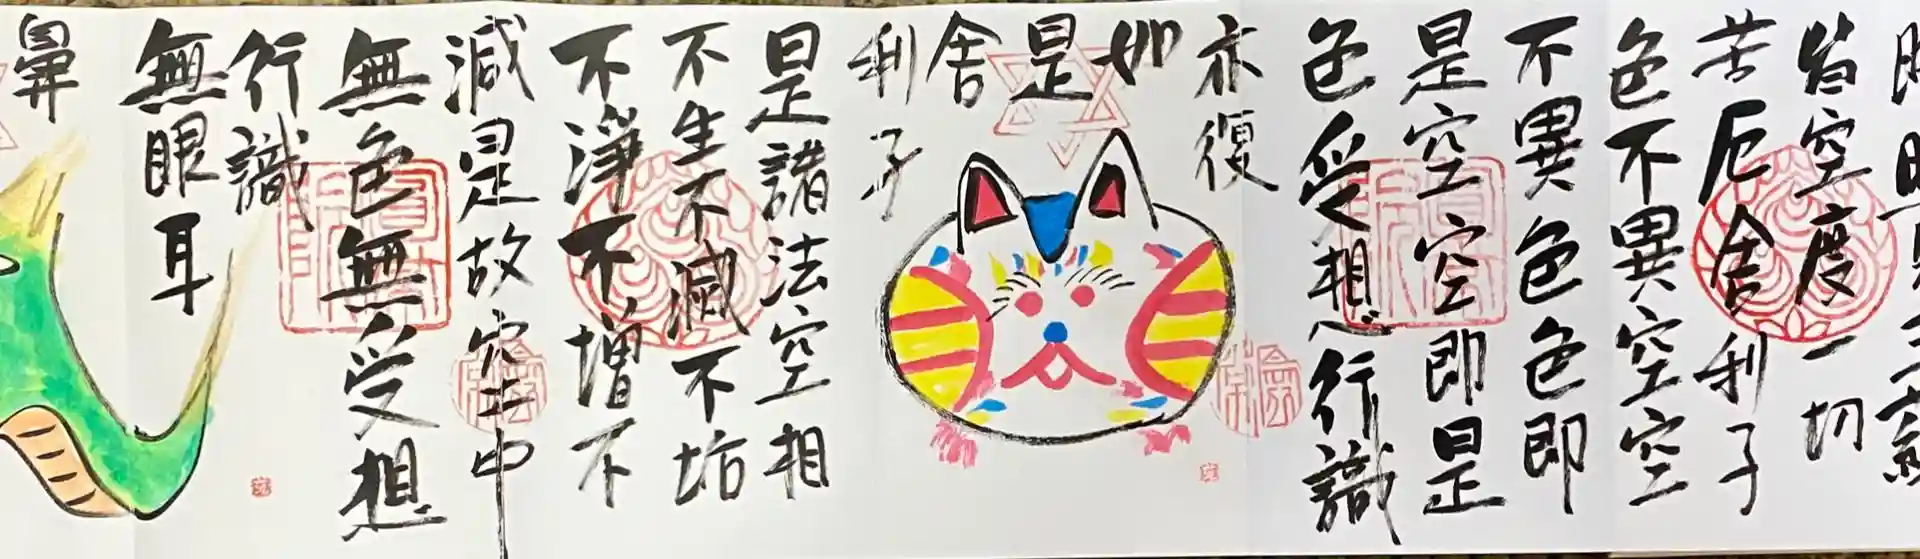 皆空度一切
苦厄舍利子
色不異空空
不異色色即
是空空即是
色受想行識
亦復
如
是
舍
利子
是諸法空相
不生不滅不垢
不淨不增不
減是故空中
無色無受想
行識
無眼耳
鼻